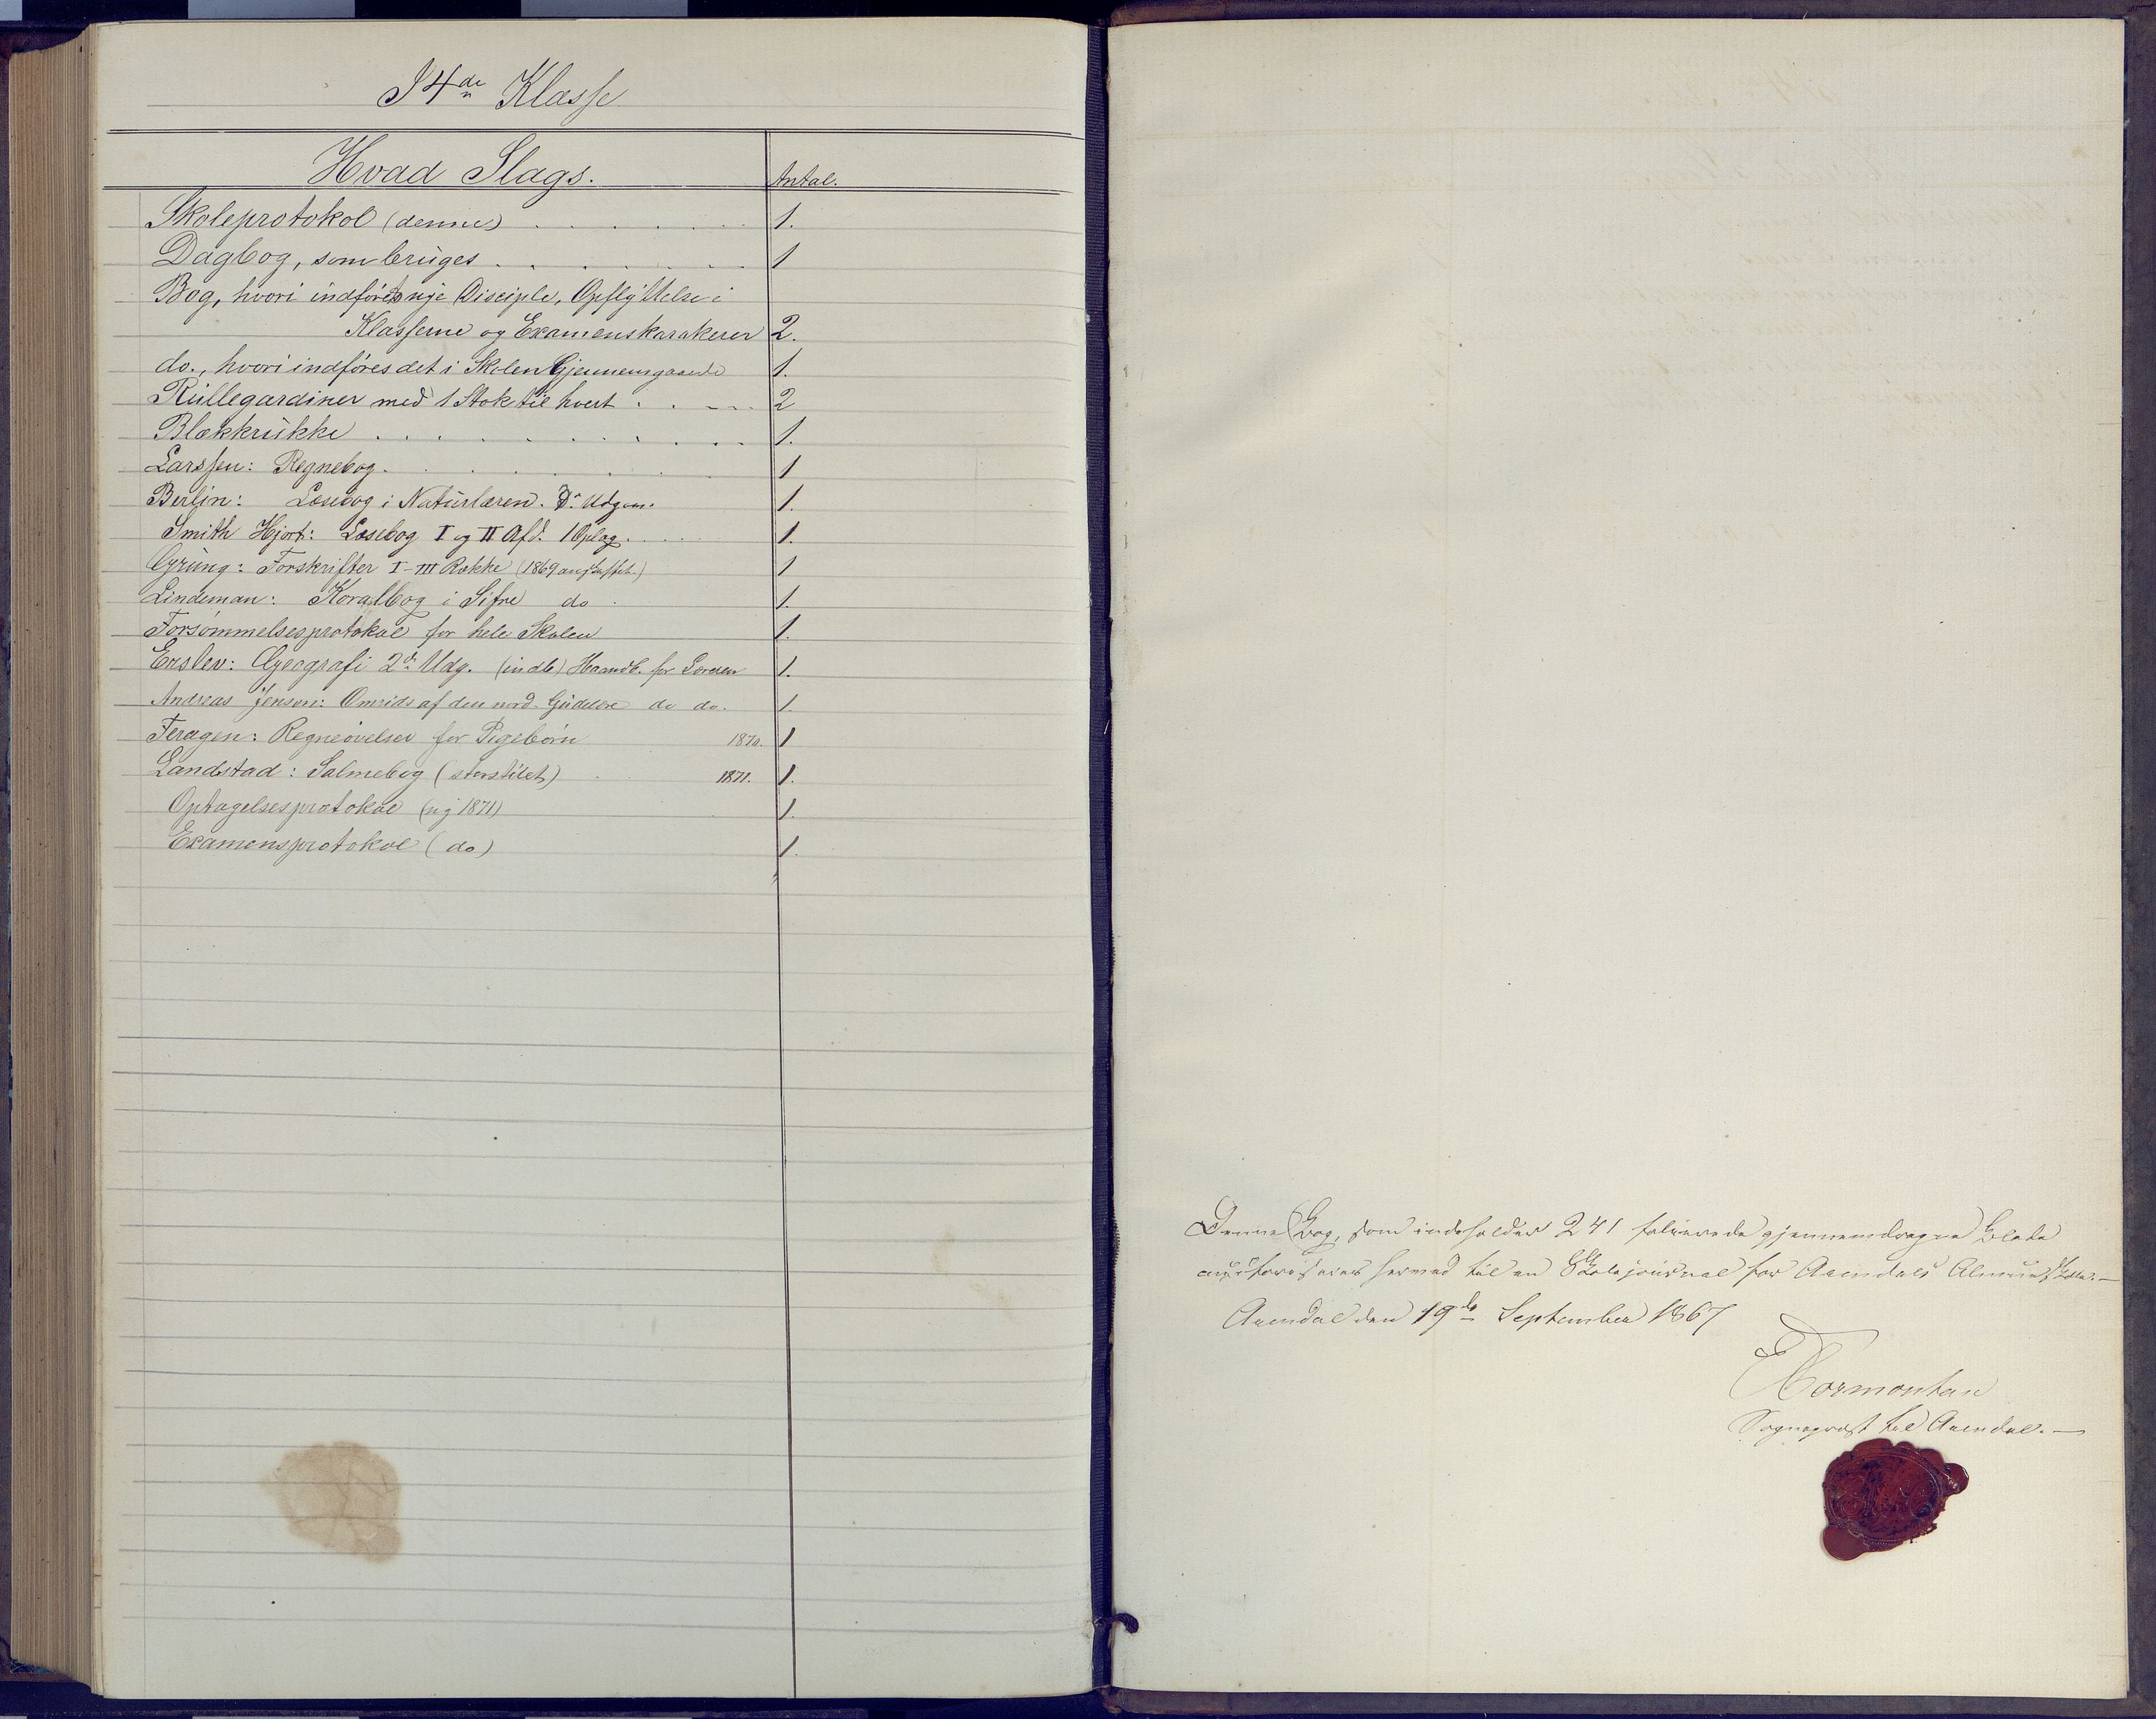 I 4de Klasse
Hvad Slags. Antal.
Skoleprotokol (denne) 1.
Dagbog, som bruges 1
Bog, hvori indføres nye Disciple, Opflyttelse i
Klasserne og Examenskarakerer 2.
do., hvori indføres det i Skolen Gjennemgaaede 1.
Rullegardiner med 1 Stok til hvert 2
Blækkrukke 1.
Larssen: Regnebog. 1
Berlin: Læsebog i Naturlæren. Udgave. 1.
Smith Hjort: Læsebog I og II Afd. 1 Oplag. 1.
Forskrifter I-III Række (1869 anskaffet.) 1
Lindeman: Koralbog i Sifre do 1.
Forsømmelsesprotokol for hele Skolen 1.
Erslev: Geografi 2den Udg. (indb) Haandb. for Læreren 1.
Andreas Jensen: Omrids af den nord. Gudelære do do. 1.
Feragen: Regneøvelser for Pigebørn 1870. 1
Landstad: Salmebog (storstilet) 1871. 1.
Optagelsesprotokol (ny 1871) 1.
Examensprotokol (do) 1.
Denne Bog, som indeholder 241 folierede gjennemdragne Blade
autoriseres hermed til en Skolejournal for Arendals Almueskole.—
Arendal den 19de September 1867
Tormontan
Sogneprest til Arendal.—